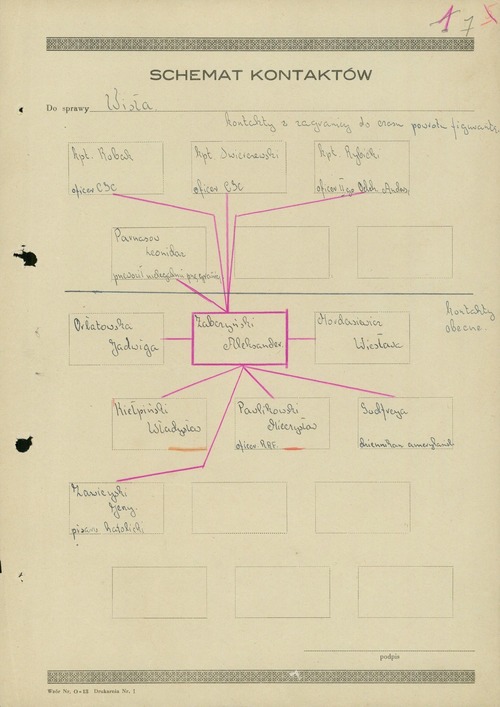 17
SCHEMAT KONTAKTÓW
Do sprawy Wisła.
kontakty z zagranicy do czasu powrotu figuranta
kpt. Robak
oficer CSC
kpt
oficer CSC
kpt. Rybicki
oficer II go Oddz. Andersa
Parnasow
Leonidas
kontakty
obecne.
Orłatowska
Jadwiga
Zabczyński
Aleksander.
Mordasiewicz
Wiesława
Kiełpiński
Władysław
Pawlikowski
Mieczysław
oficer RAF.
dziennikarz amerykański
Zawieyski
Jerzy
pisarz katolicki
podpis
Wzór Nr. O-12 Drukarnia Nr. 1